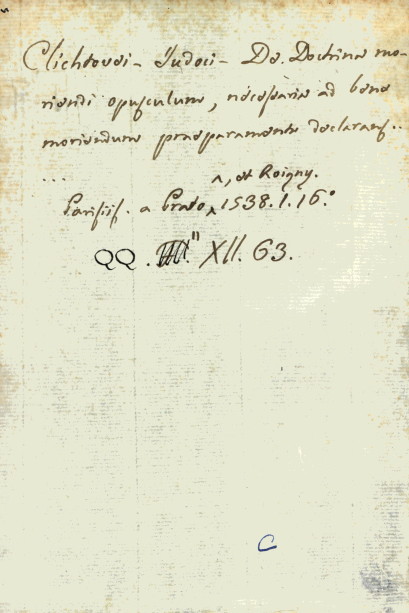 Clichtovei - Iudoci - De Doctrina mo-
riendi opusculum, necessaria ad bene
moriendum praeparamenta declarans..
...
, et Roigny.
Parisiis. a Prato, 1538. 1. 16.°
QQ. " XII. 63.
C